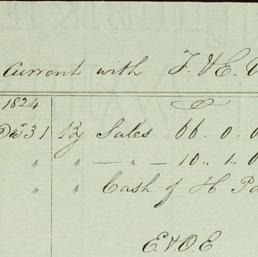 Current with F. & E.
1824
Dec 31 By Sales 66. 0. 0
" " — " — 10. 1. 0
" " Cash of H
E & O E